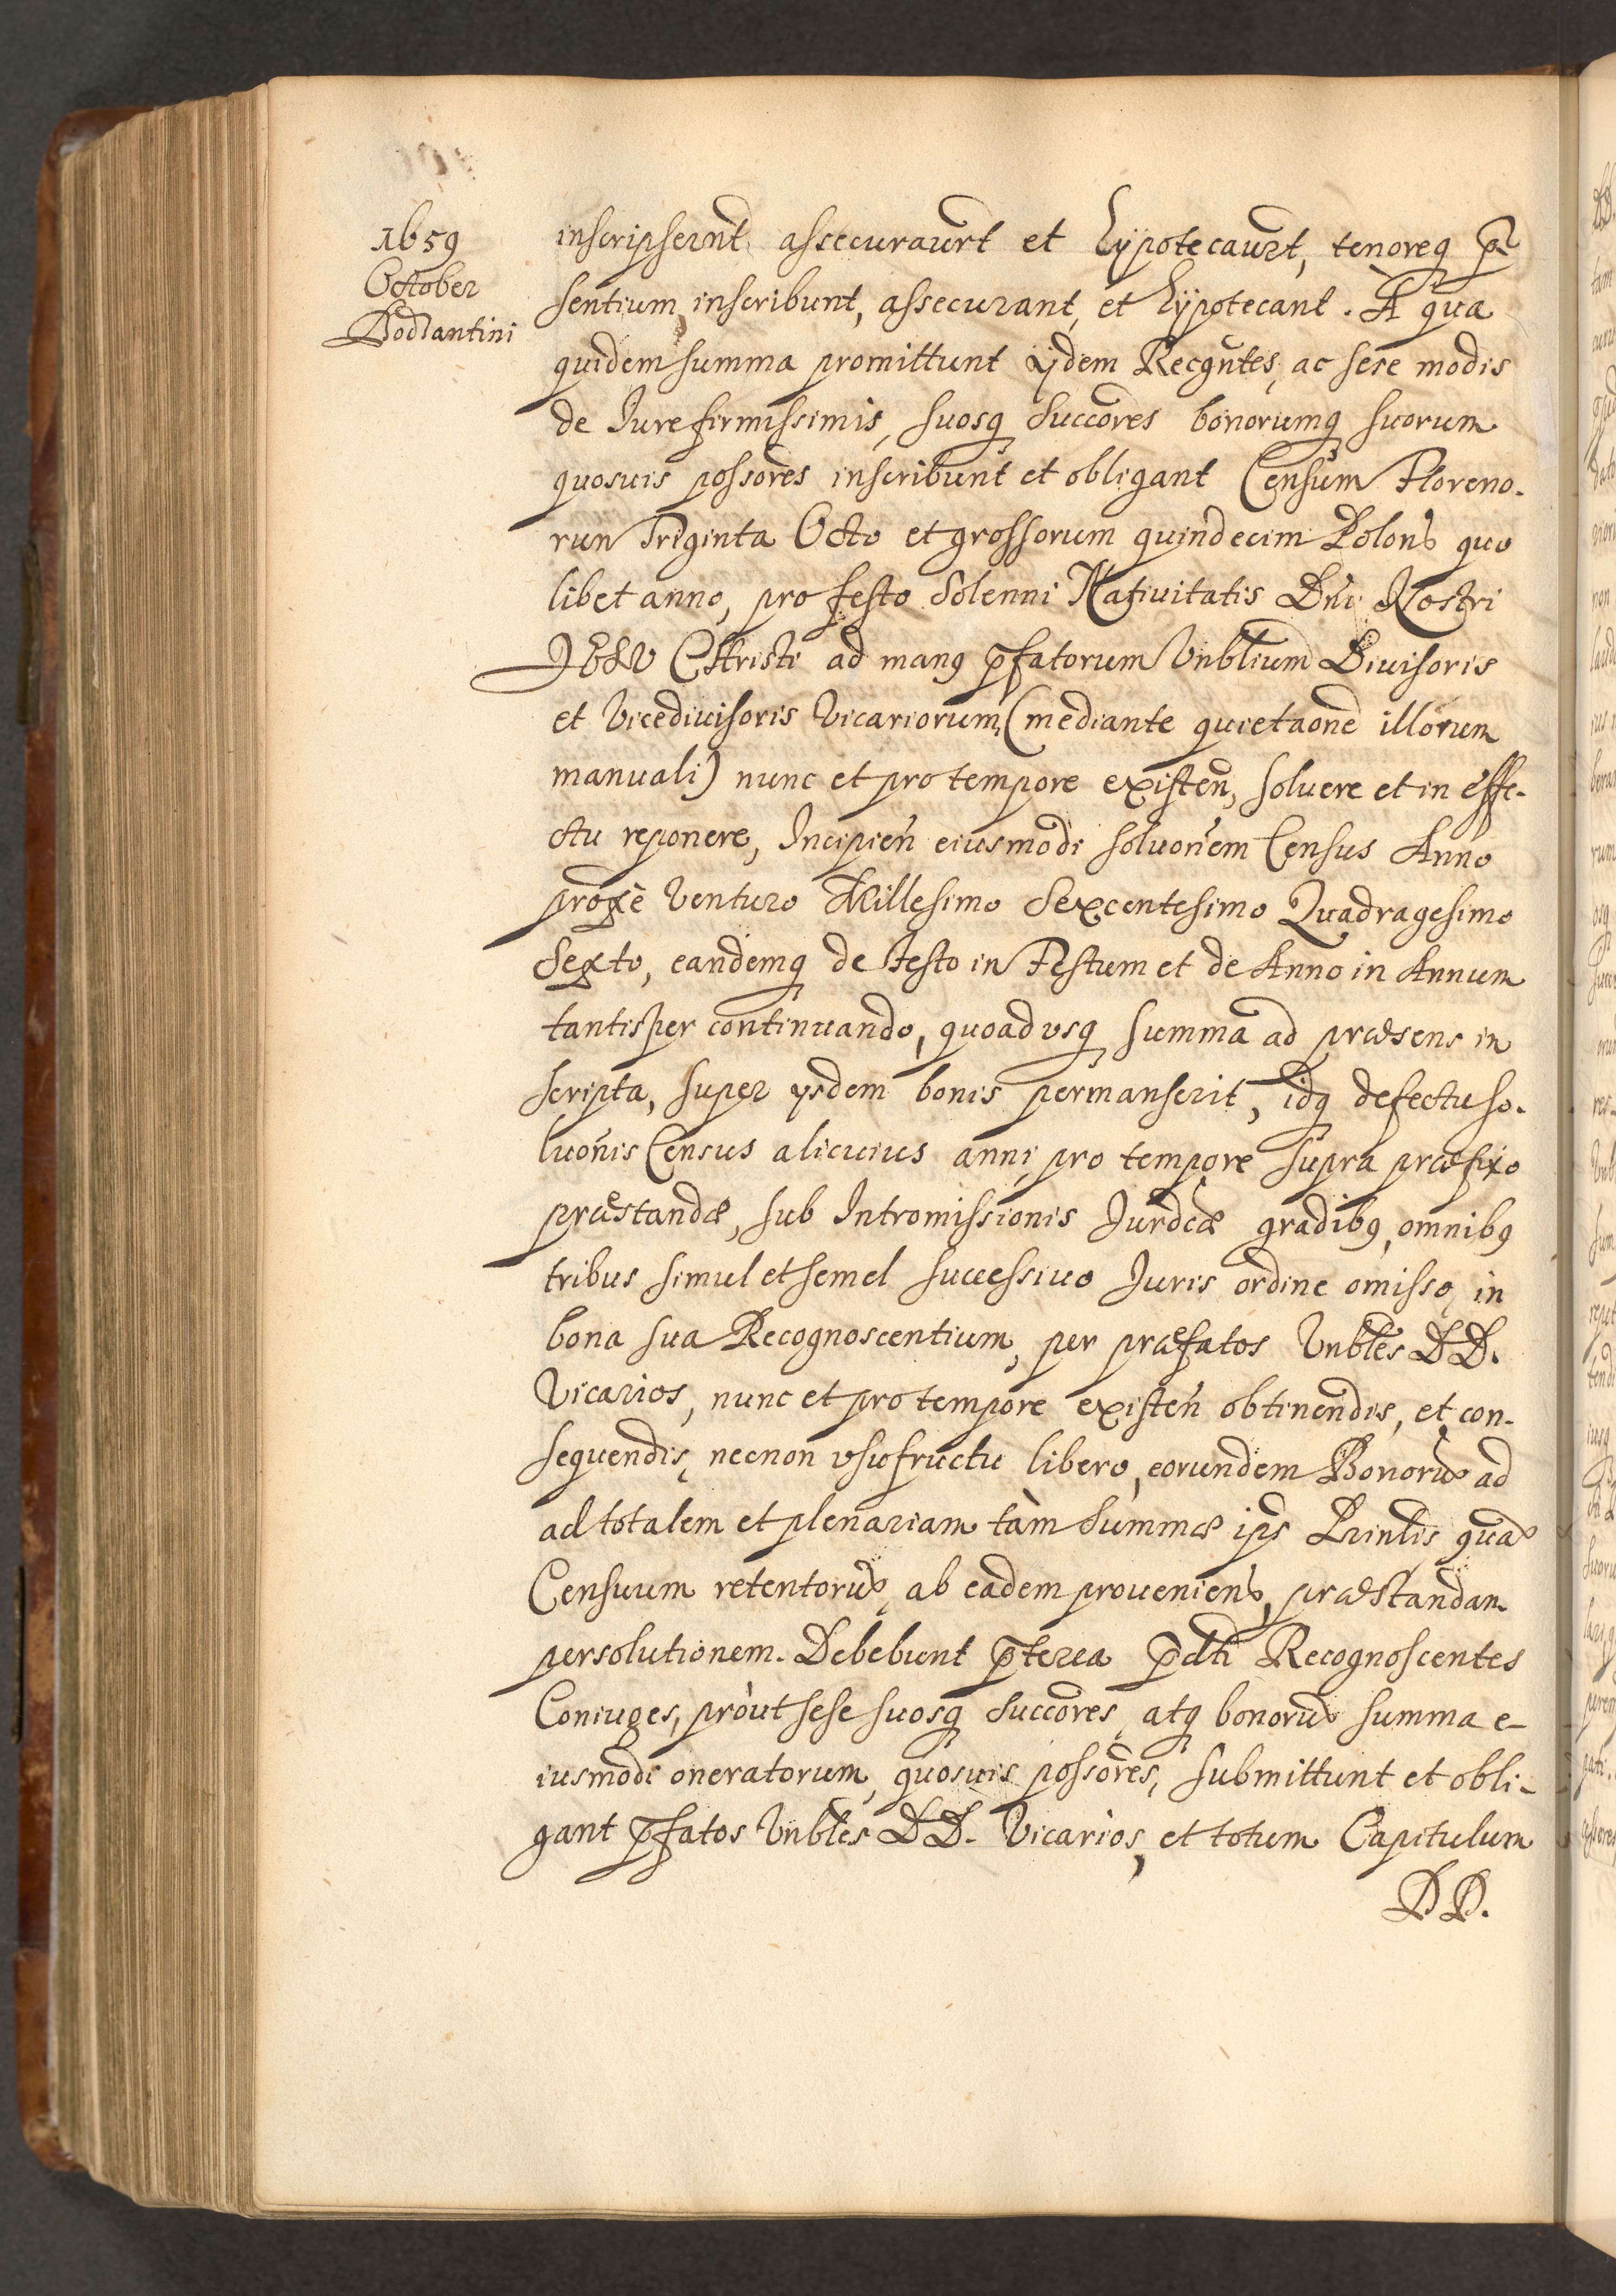 1659
October
Bodzantini
inscripserunt assecuraverūt et hÿpotecaverūt, tenoreq pr̄
sentium inscribunt, assecurant, et hÿpotecant. A qua
quidem summa promittunt ijdem Recgntes, ac sese modis
de Jure firmissimis, suosq Succores bonorumq suorum
quosvis possores inscribunt et obligant Censum Floreno-
rum Triginta Octo et grossorum quindecim Polon quo
libet anno, pro festo Solenni Nativitatis Dni Nostri
JESV CHristi ad manq p̄fatorum Vnblium Divisoris
et Vicedivisoris Vicariorum, (mediante quietaone illorum
manuali) nunc et pro tempore existen, soluere et in effe-
ctu reponere, Incipien eiusmodi soluonem Census Anno
proxe venturo Millesimo Sexcentesimo Quadragesimo
Sexto, eandemq de Festo in Festum et de Anno in Annum
tantisper continuando, quoad vsq summa ad præsens in
scripta, super ysdem bonis permanserit, idq defectu so-
luonis Census alicuius anni pro tempore supra præfixo
præstandæ, sub Intromissionis Jurdcæ gradibq, omnibq
tribus simul et semel successiuo Juris ordine omisso, in
bona sua Recognoscentium, per præfatos Vnbles DD.
Vicarios, nunc et pro tempore existen obtinendis, et con-
sequendis, necnon vsufructu libero, eorundem Bonorū ad
ad totalem et plenariam tàm Summæ ips Prinlis quā
Censuum retentorū, ab eadem provenien, præstandam
persolutionem. Debebunt p̄terea p̄dti Recognoscentes
Coniuges, pròut sese suosq Succores, atq bonorū summa e-
iusmodi oneratorum, quosvis possores, submittunt et obli-
gant p̄fatos Vnbles DD. Vicarios, et totum Capitulum
DD.